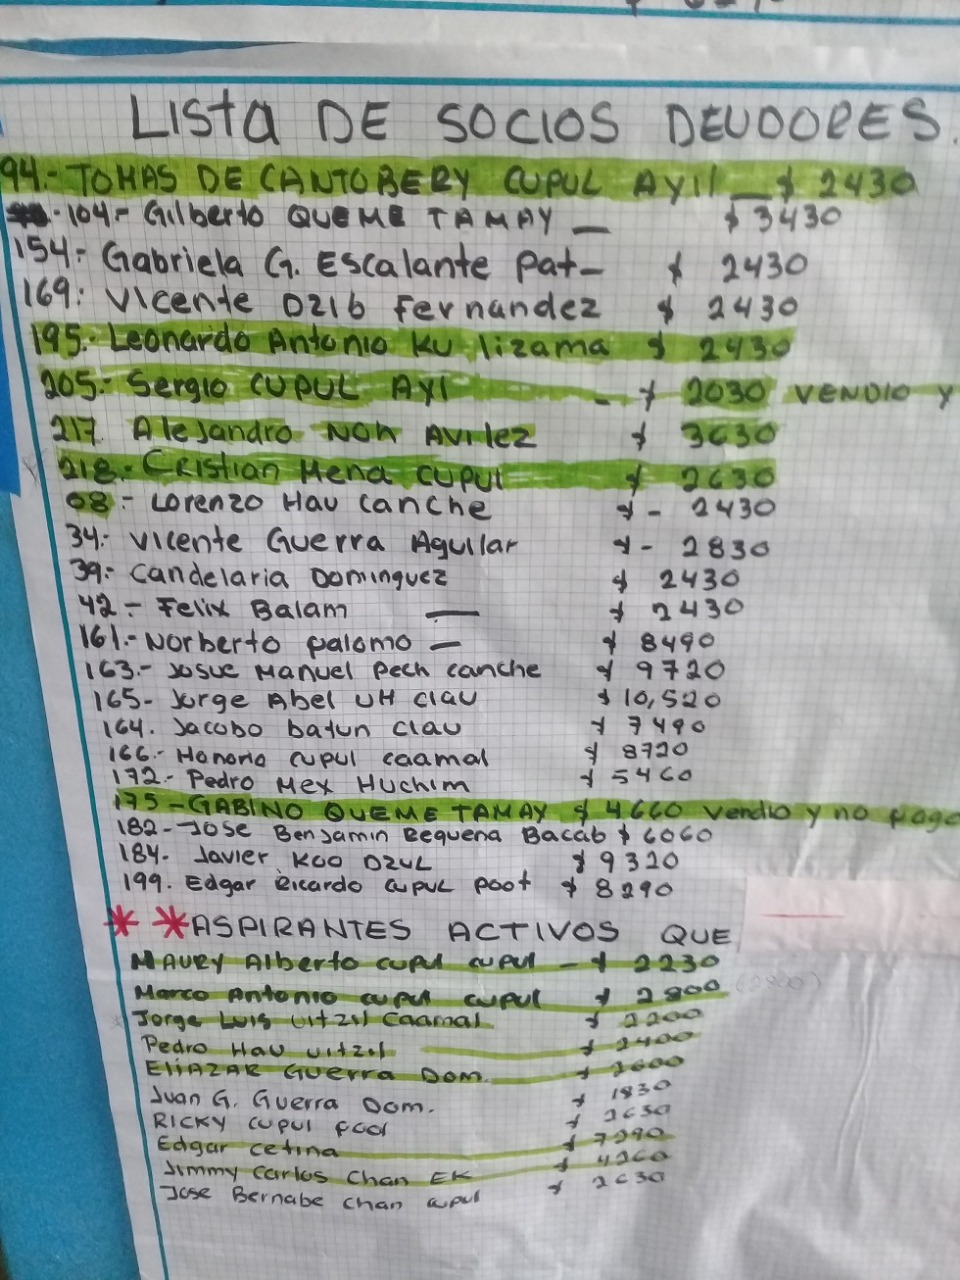 LISTA DE SOCIOS DEUDORES.
94.- TOMAS DE CANTOBERY CUPUL AYIL _ $ 2430
104.- Gilberto QUEME TAMAY _ $ 3430
154.- Gabriela G. Escalante Pat - $ 2430
169: Vicente Dzib Fernandez $ 2430
195.- Leonardo Antonio Ku lizama $ 2430
205.- Sergio CUPUL AYI - $ 2030 VENDIO Y
217 Alejandro Noh Avilez $ 3630
218.- CRistian Mena CUPUl $ 2630
08.- Lorenzo Hau Canche $ - 2430
34.- Vicente Guerra Aguilar $ - 2830
39.- Candelaria Dominguez $ 2430
42.- Felix Balam _ $ 2430
161.- Norberto palomo - $ 8490
163.- Josue Manuel Pech canche $ 9720
165- Jorge Abel UH Clau $ 10,520
164. Jacobo batun Clau $ 7490
166.- Honorio cupul caamal $ 8720
172.- Pedro Mex Huchim $ 5460
175 - GABINO QUEME TAMAY $ 4660 Vendio y no pago
182- Jose Benjamin Requena Bacab $ 6060
184. Javier Koo DZUL $ 9320
199. Edgar Ricardo cupul poot $ 8290
* * ASPIRANTES ACTIVOS QUE
MAURY Alberto cupul cupul - $ 2230
Marco Antonio cupul cupul $ 2800
Jorge Luis Uitzil Caamal $ 2200
Pedro Hau Uitzil $ 2400
ELIAZAR Guerra Dom. $ 2600
Juan G. Guerra Dom. $ 1830
RICKY cupul pool $ 2630
Edgar cetina $ 7290
Jimmy Carlos Chan EK $ 4260
Jose Bernabe Chan cupul $ 2630